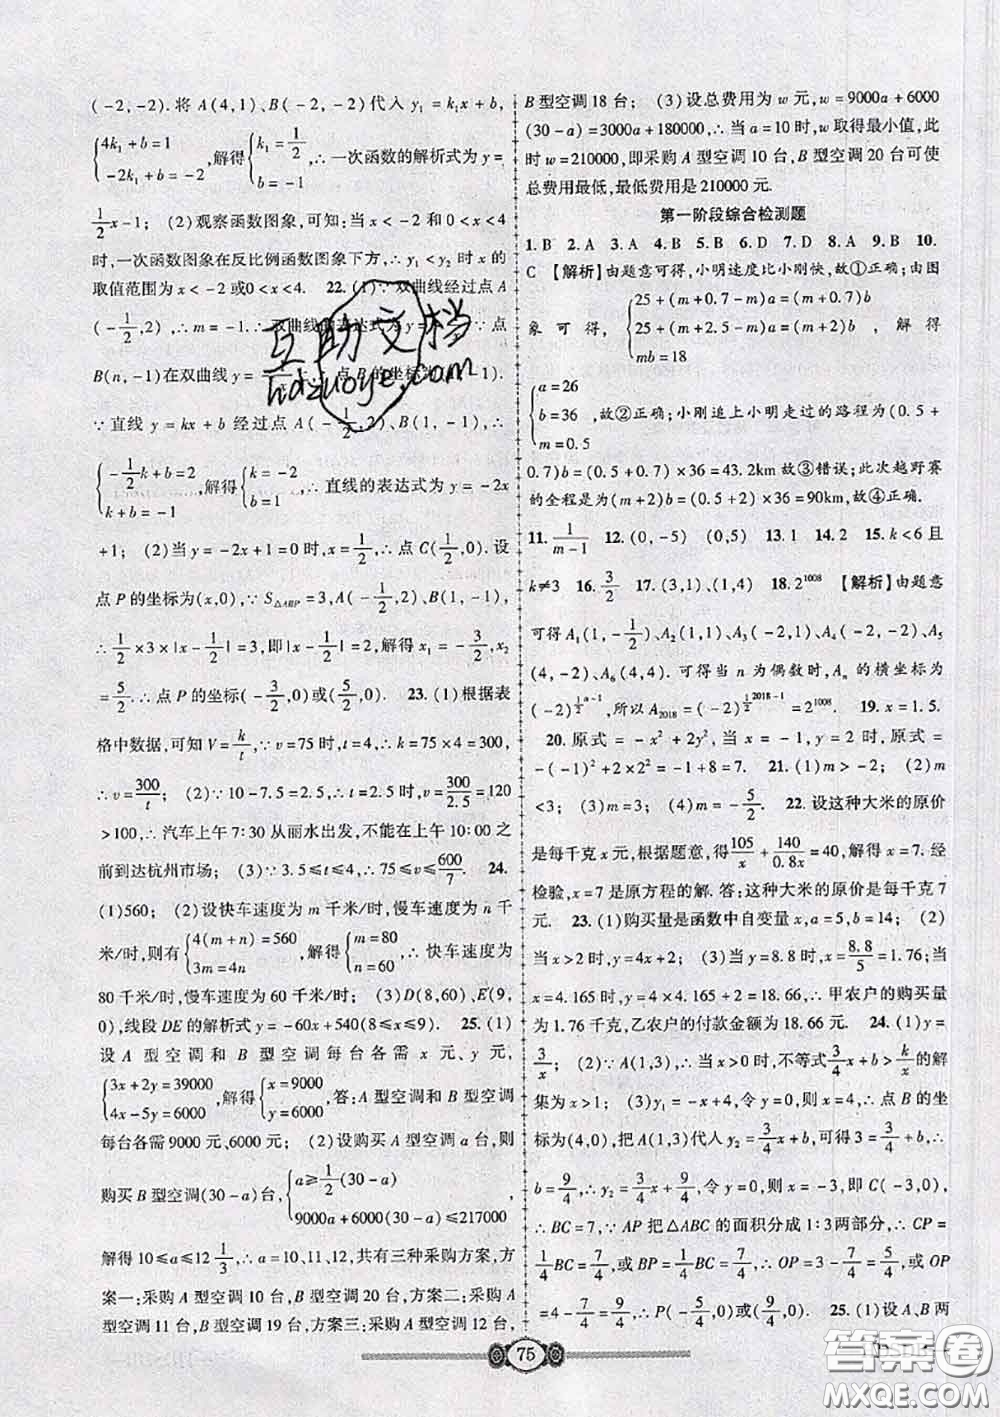 (-2,-2).将 A(4,1)、B(-2,-2)代入 y₁=k₁x+b,
{4k₁+b=1 -2k₁+b=-2,解得{k₁=1/2 b=-1,∴一次函数的解析式为 y=
1/2x-1; (2)观察函数图象,可知:当 x<-2 和 0<x<4
时,一次函数图象在反比例函数图象下方,∴y₁<y₂ 时 x 的
取值范围为 x<-2 或0<x<4. 22.(1)∵双曲线经过点 A
(-1/2,2),∴m=-1.∴双曲线的表达式为 y= ∵点
B(n,-1)在双曲线 y= 点 B 的坐标为 -1).
∵直线 y=kx+b 经过点 A(-1/2,2)、B(1,-1),∴
{-1/2k+b=2 k+b=-1,解得{k=-2 b=1,∴直线的表达式为 y=-2x
+1; (2)当 y=-2x+1=0 时,x=1/2,∴点 C(1/2,0).设
点 P 的坐标为(x,0),∵S△ABP=3,A(-1/2,2)、B(1,-1),
∴1/2×3×|x-1/2|=3,即|x-1/2|=2,解得 x₁=-3/2,x₂
=5/2.∴点 P 的坐标(-3/2,0)或(5/2,0). 23.(1)根据表
格中数据,可知 V=k/t,∵v=75 时,t=4,∴k=75×4=300,
∴v=300/t; (2)∵10-7.5=2.5,∴t=2.5时,v=300/2.5=120
>100,∴汽车上午 7:30 从丽水出发,不能在上午 10:00 之
前到达杭州市场; (3)∵3.5≤t≤4,∴75≤v≤600/7. 24.
(1)560; (2)设快车速度为 m 千米/时,慢车速度为 n 千
米/时,则有{4(m+n)=560 3m=4n,解得{m=80 n=60,∴快车速度为
80 千米/时,慢车速度为 60 千米/时; (3)D(8,60)、E(9,
0),线段 DE 的解析式 y=-60x+540(8≤x≤9). 25.(1)
设 A 型空调和 B 型空调每台各需 x 元、y 元,
{3x+2y=39000 4x-5y=6000,解得{x=9000 y=6000,答:A 型空调和 B 型空调
每台各需 9000 元、6000 元; (2)设购买 A 型空调 a 台,则
购买 B 型空调(30-a)台,{a≥1/2(30-a) 9000a+6000(30-a)≤217000,
解得 10≤a≤12 1/3,∴a=10、11、12,共有三种采购方案,方
案一;采购 A 型空调 10 台,B 型空调 20 台,方案二;采购 A
型空调 11 台,B 型空调 19 台,方案三;采购 A 型空调 12 台,
B 型空调 18 台; (3)设总费用为 w 元,w=9000a+6000
(30-a)=3000a+180000,∴当 a=10 时,w 取得最小值,此
时 w=210000,即采购 A 型空调 10 台,B 型空调 20 台可使
总费用最低,最低费用是 210000 元.
第一阶段综合检测题
1.B 2.A 3.A 4.B 5.B 6.D 7.D 8.A 9.B 10.
C 【解析】由题意可得,小明速度比小刚快,故①正确;由图
象可得,{25+(m+0.7-m)a=(m+0.7)b 25+(m+2.5-m)a=(m+2)b mb=18,解得
{a=26 b=36 m=0.5,故②正确;小刚追上小明走过的路程为(0.5+
0.7)b=(0.5+0.7)×36=43.2km 故③错误;此次越野赛
的全程是为(m+2)b=(0.5+2)×36=90km,故④正确.
11.1/(m-1) 12.(0,-5) (0,5) 13.1 14.2 15.k<6 且
k≠3 16.3/2 17.(3,1)、(1,4) 18.2¹⁰⁰⁸ 【解析】由题意
可得 A₁(1,-1/2)、A₂(1,1)、A₃(-2,1)、A₄(-2,-2)、A₅
(4,-2)、A₆(4,4). 可得当 n 为偶数时,Aₙ 的横坐标为
(-2)^(1/2 n-1),所以 A₂₀₁₈=(-2)^(1/2 2018-1)=2¹⁰⁰⁸. 19.x=1.5.
20.原式=-x²+2y²,当 x=-1,y=2 时,原式=
-(-1)²+2×2²=-1+8=7. 21.(1)m>-2; (2)m
<3; (3)m=3; (4)m=-5/2. 22.设这种大米的原价
是每千克 x 元,根据题意,得105/x+140/0.8x=40,解得 x=7. 经
检验,x=7 是原方程的解. 答:这种大米的原价是每千克 7
元. 23.(1)购买量是函数中自变量 x,a=5,b=14; (2)
当 x>2 时,y=4x+2; (3)当 y=8.8 时,x=8.8/5=1.76,当
x=4.165 时,y=4×4.165+2=18.66,∴甲农户的购买量
为 1.76 千克,乙农户的付款金额为 18.66 元. 24.(1)y=
3/x; (2)∵A(1,3),∴当 x>0 时,不等式3/4x+b>k/x的解
集为 x>1; (3)y₁=-x+4,令 y=0,则 x=4,∴点 B 的坐
标为(4,0),把 A(1,3)代入 y₂=3/4x+b,可得 3=3/4+b,∴
b=9/4,∴y₂=3/4x+9/4,令 y=0,则 x=-3,即 C(-3,0),
∴BC=7,∵AP 把△ABC 的面积分成 1:3两部分,∴CP=
1/4BC=7/4,或 BP=1/4BC=7/4,∴OP=3-7/4=5/4,或 OP
=4-7/4=9/4,∴P(-5/4,0)或(9/4,0). 25.(1)设 A、B 两
75
互助文档
hdzuoye.com
答案圈
MXQE.COM